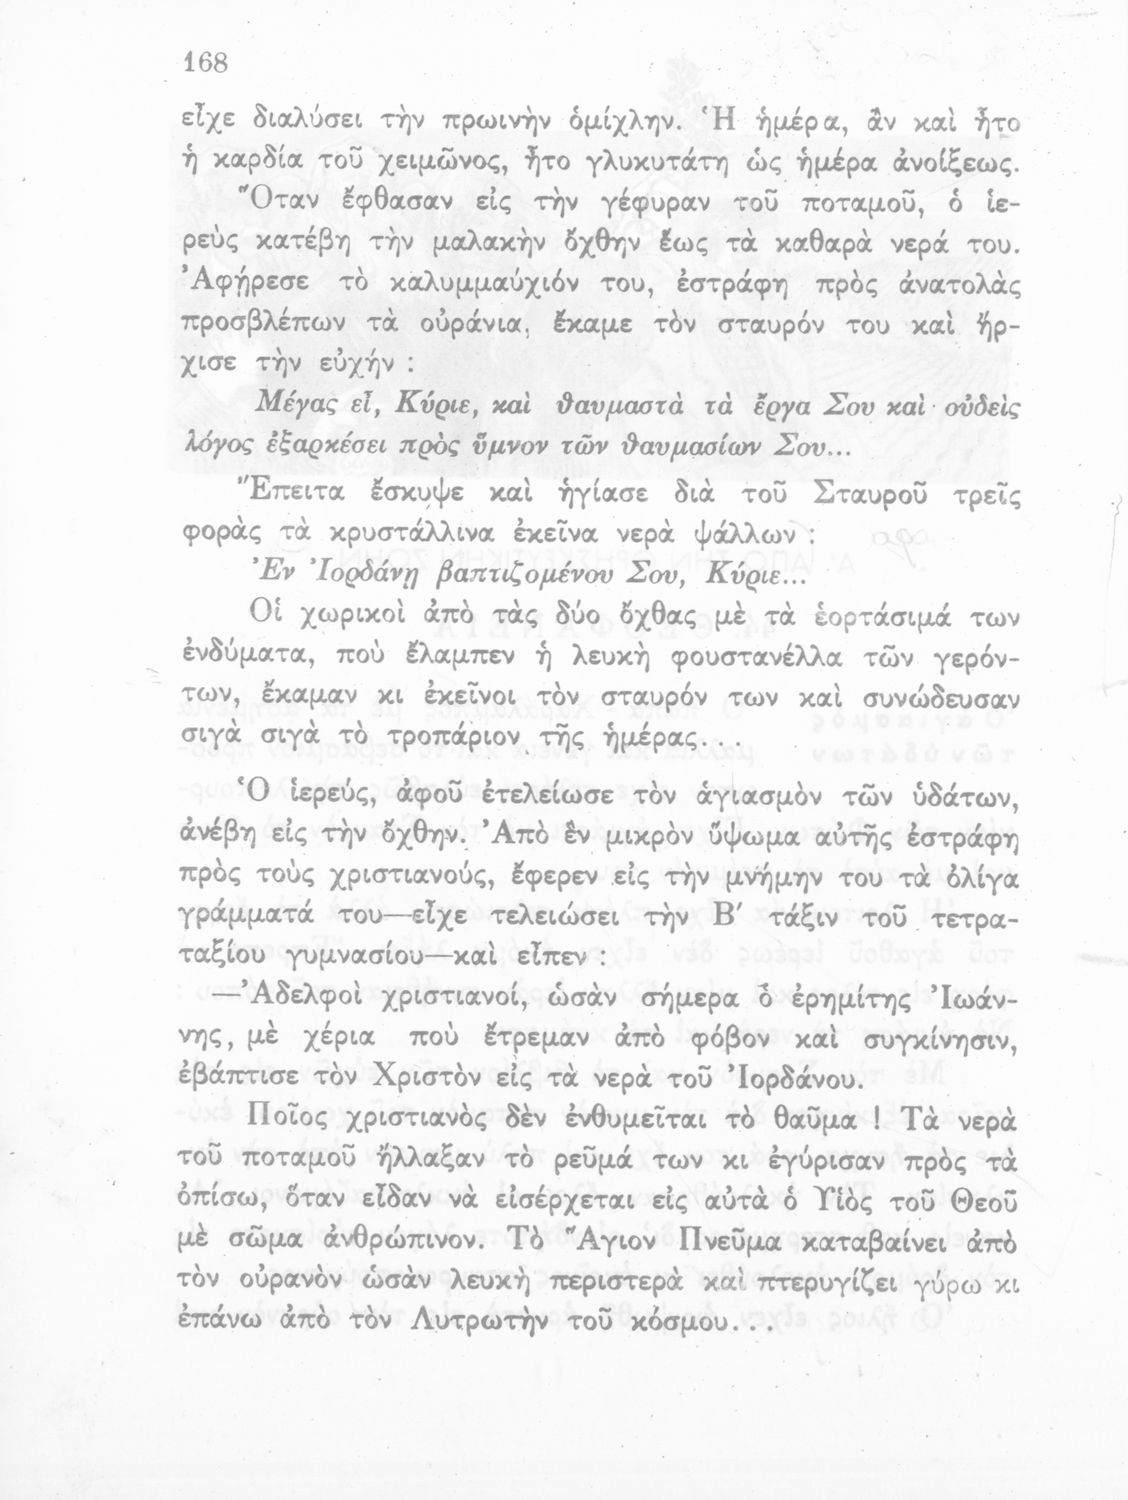 168
εἶχε διαλύσει τὴν πρωινὴν ὁμίχλην. Ἡ ἡμέρα, ἂν καὶ ἦτο
ἡ καρδία τοῦ χειμῶνος, ἦτο γλυκυτάτη ὡς ἡμέρα ἀνοίξεως.
Ὅταν ἔφθασαν εἰς τὴν γέφυραν τοῦ ποταμοῦ, ὁ ἱε-
ρεὺς κατέβη τὴν μαλακὴν ὄχθην ἕως τὰ καθαρὰ νερά του.
Ἀφῄρεσε τὸ καλυμμαύχιόν του, ἐστράφη πρὸς ἀνατολὰς
προσβλέπων τὰ οὐράνια, ἔκαμε τὸν σταυρόν του καὶ ἤρ-
χισε τὴν εὐχήν :
Μέγας εἶ, Κύριε, καὶ θαυμαστὰ τὰ ἔργα Σου καὶ οὐδεὶς
λόγος ἐξαρκέσει πρὸς ὕμνον τῶν θαυμασίων Σου...
Ἔπειτα ἔσκυψε καὶ ἡγίασε διὰ τοῦ Σταυροῦ τρεῖς
φορὰς τὰ κρυστάλλινα ἐκεῖνα νερὰ ψάλλων :
Ἐν Ἰορδάνῃ βαπτιζομένου Σου, Κύριε...
Οἱ χωρικοὶ ἀπὸ τὰς δύο ὄχθας μὲ τὰ ἑορτάσιμά των
ἐνδύματα, ποὺ ἔλαμπεν ἡ λευκὴ φουστανέλλα τῶν γερόν-
των, ἔκαμαν κι ἐκεῖνοι τὸν σταυρόν των καὶ συνώδευσαν
σιγὰ σιγὰ τὸ τροπάριον τῆς ἡμέρας...
Ὁ ἱερεύς, ἀφοῦ ἐτελείωσε τὸν ἁγιασμὸν τῶν ὑδάτων,
ἀνέβη εἰς τὴν ὄχθην. Ἀπὸ ἓν μικρὸν ὕψωμα αὐτῆς ἐστράφη
πρὸς τοὺς χριστιανούς, ἔφερεν εἰς τὴν μνήμην του τὰ ὀλίγα
γράμματά του—εἶχε τελειώσει τὴν Β′ τάξιν τοῦ τετρα-
ταξίου γυμνασίου—καὶ εἶπεν :
—Ἀδελφοὶ χριστιανοί, ὡσὰν σήμερα ὁ ἐρημίτης Ἰωάν-
νης, μὲ χέρια ποὺ ἔτρεμαν ἀπὸ φόβον καὶ συγκίνησιν,
ἐβάπτισε τὸν Χριστὸν εἰς τὰ νερὰ τοῦ Ἰορδάνου.
Ποῖος χριστιανὸς δὲν ἐνθυμεῖται τὸ θαῦμα ! Τὰ νερὰ
τοῦ ποταμοῦ ἤλλαξαν τὸ ρεῦμά των κι ἐγύρισαν πρὸς τὰ
ὀπίσω, ὅταν εἶδαν νὰ εἰσέρχεται εἰς αὐτὰ ὁ Υἱὸς τοῦ Θεοῦ
μὲ σῶμα ἀνθρώπινον. Τὸ Ἅγιον Πνεῦμα καταβαίνει ἀπὸ
τὸν οὐρανὸν ὡσὰν λευκὴ περιστερὰ καὶ πτερυγίζει γύρω κι
ἐπάνω ἀπὸ τὸν Λυτρωτὴν τοῦ κόσμου...